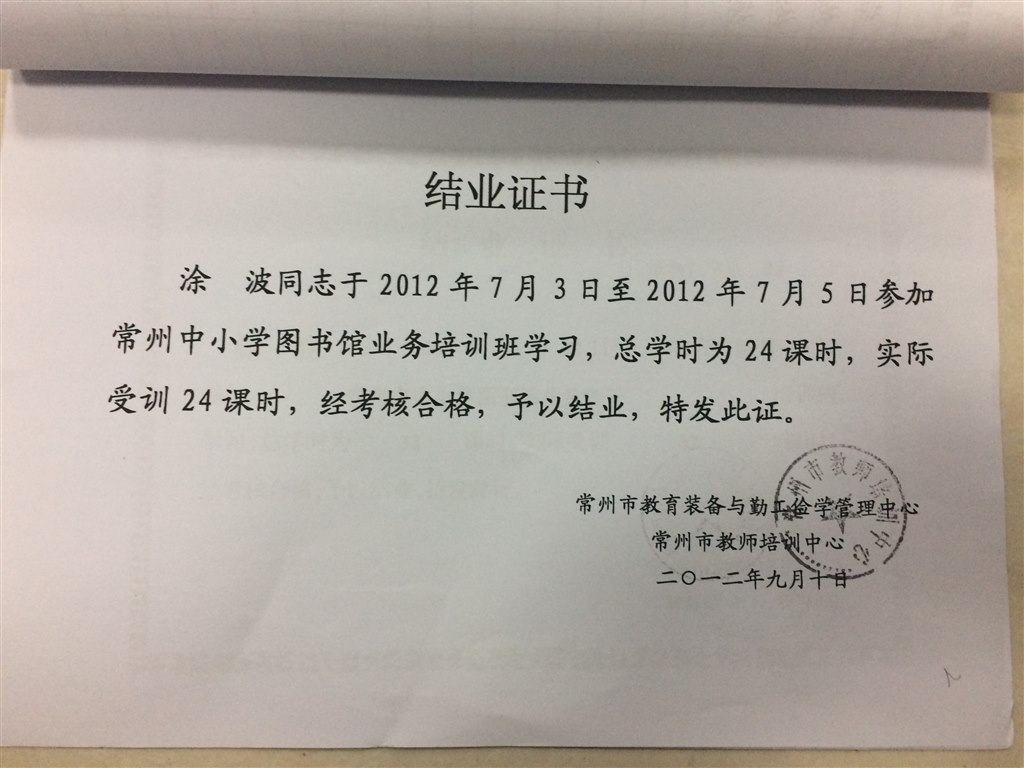 结业证书
涂 波同志于 2012 年 7 月 3 日至 2012 年 7 月 5 日参加
常州中小学图书馆业务培训班学习，总学时为 24 课时，实际
受训 24 课时，经考核合格，予以结业，特发此证。
常州市教育装备与勤工俭学管理中心
常州市教师培训中心
二〇一二年九月十日
常州市教师培训中心